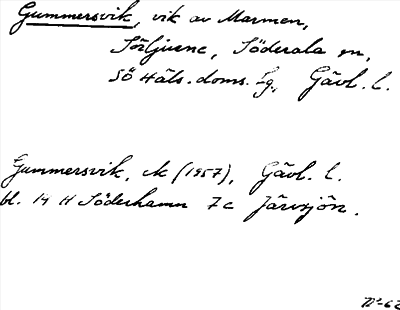 Gummersvik, vik av Marmen,
Söljuene, Söderala sn,
SÖ Häls. doms. Lg., Gävl. l.
Gummersvik, ek (1957), Gävl. l.
bl. 14 H Söderhamn 7c Järvsjön.